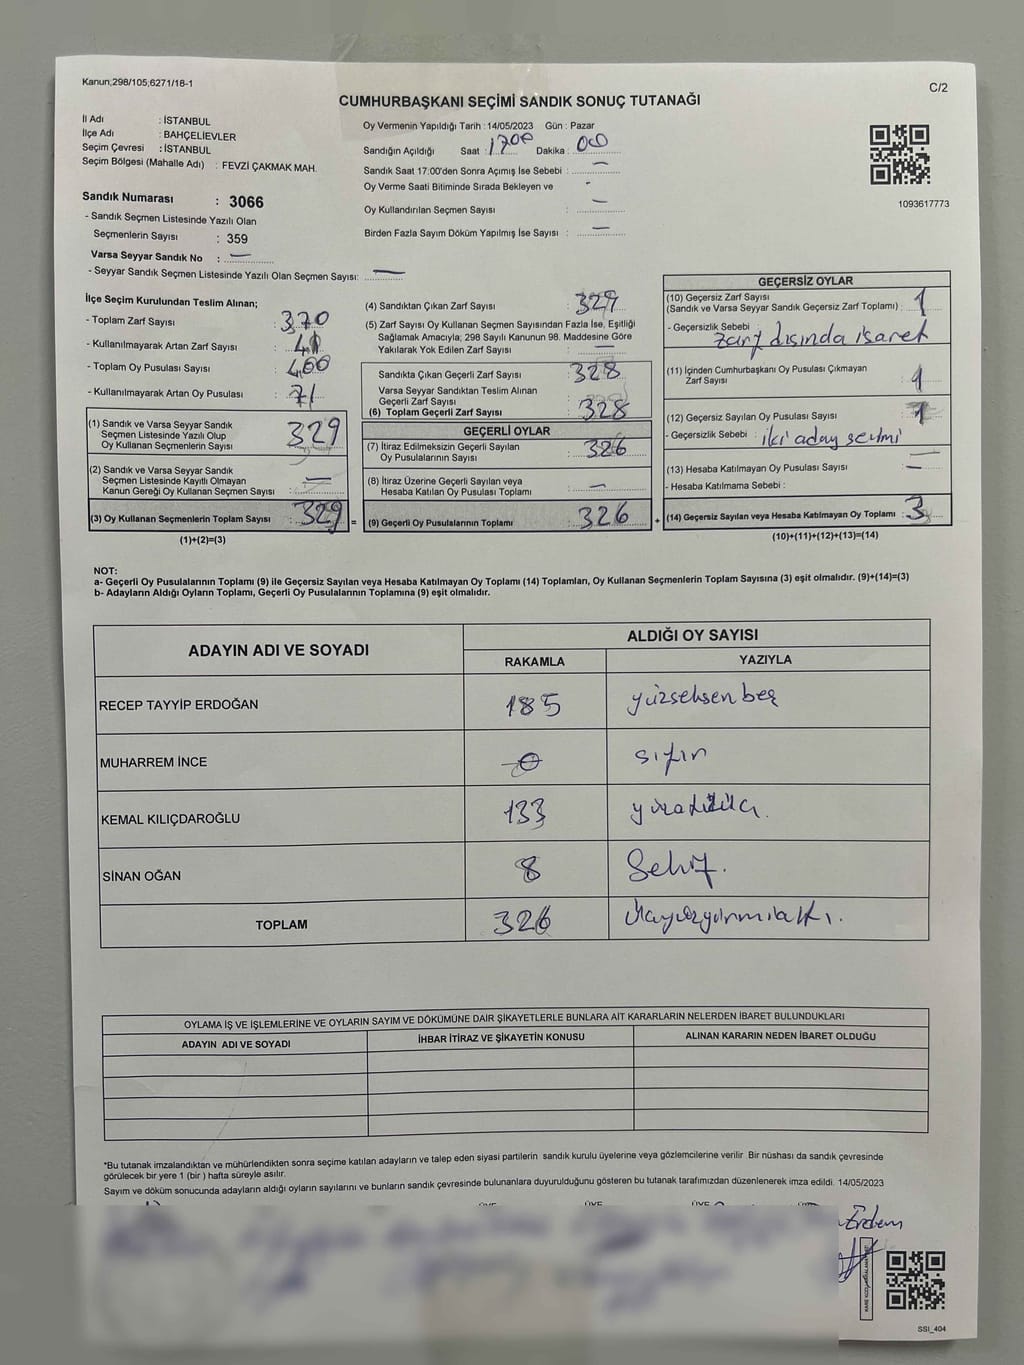 Kanun;298/105;6271/18-1
C/2
CUMHURBAŞKANI SEÇİMİ SANDIK SONUÇ TUTANAĞI
İl Adı : İSTANBUL
İlçe Adı : BAHÇELİEVLER
Seçim Çevresi : İSTANBUL
Seçim Bölgesi (Mahalle Adı) : FEVZİ ÇAKMAK MAH.
Sandık Numarası : 3066
- Sandık Seçmen Listesinde Yazılı Olan
Seçmenlerin Sayısı : 359
Varsa Seyyar Sandık No : —
- Seyyar Sandık Seçmen Listesinde Yazılı Olan Seçmen Sayısı: —
Oy Vermenin Yapıldığı Tarih : 14/05/2023 Gün : Pazar
Sandığın Açıldığı Saat : 1700 Dakika : 00
Sandık Saat 17:00'den Sonra Açımış İse Sebebi : —
Oy Verme Saati Bitiminde Sırada Bekleyen ve -
Oy Kullandırılan Seçmen Sayısı : —
Birden Fazla Sayım Döküm Yapılmış İse Sayısı : —
1093617773
İlçe Seçim Kurulundan Teslim Alınan;
- Toplam Zarf Sayısı : 370
- Kullanılmayarak Artan Zarf Sayısı : 41
- Toplam Oy Pusulası Sayısı : 400
- Kullanılmayarak Artan Oy Pusulası : 71
(1) Sandık ve Varsa Seyyar Sandık
Seçmen Listesinde Yazılı Olup
Oy Kullanan Seçmenlerin Sayısı : 329
(2) Sandık ve Varsa Seyyar Sandık
Seçmen Listesinde Kayıtlı Olmayan
Kanun Gereği Oy Kullanan Seçmen Sayısı : —
(3) Oy Kullanan Seçmenlerin Toplam Sayısı : 329 =
(1)+(2)=(3)
(4) Sandıktan Çıkan Zarf Sayısı : 329
(5) Zarf Sayısı Oy Kullanan Seçmen Sayısından Fazla İse, Eşitliği
Sağlamak Amacıyla; 298 Sayılı Kanunun 98. Maddesine Göre
Yakılarak Yok Edilen Zarf Sayısı : —
Sandıkta Çıkan Geçerli Zarf Sayısı : 328
Varsa Seyyar Sandıktan Teslim Alınan
Geçerli Zarf Sayısı
(6) Toplam Geçerli Zarf Sayısı : 328
GEÇERLİ OYLAR
(7) İtiraz Edilmeksizin Geçerli Sayılan
Oy Pusulalarının Sayısı : 326
(8) İtiraz Üzerine Geçerli Sayılan veya
Hesaba Katılan Oy Pusulası Toplamı : —
(9) Geçerli Oy Pusulalarının Toplamı : 326 +
GEÇERSİZ OYLAR
(10) Geçersiz Zarf Sayısı
(Sandık ve Varsa Seyyar Sandık Geçersiz Zarf Toplamı) : 1
- Geçersizlik Sebebi : zarf dışında işaret
(11) İçinden Cumhurbaşkanı Oy Pusulası Çıkmayan
Zarf Sayısı : 1
(12) Geçersiz Sayılan Oy Pusulası Sayısı : 1
- Geçersizlik Sebebi : iki aday seçimi
(13) Hesaba Katılmayan Oy Pusulası Sayısı : —
- Hesaba Katılmama Sebebi :
(14) Geçersiz Sayılan veya Hesaba Katılmayan Oy Toplamı : 3
(10)+(11)+(12)+(13)=(14)
NOT:
a- Geçerli Oy Pusulalarının Toplamı (9) ile Geçersiz Sayılan veya Hesaba Katılmayan Oy Toplamı (14) Toplamları, Oy Kullanan Seçmenlerin Toplam Sayısına (3) eşit olmalıdır. (9)+(14)=(3)
b- Adayların Aldığı Oyların Toplamı, Geçerli Oy Pusulalarının Toplamına (9) eşit olmalıdır.
ADAYIN ADI VE SOYADI
ALDIĞI OY SAYISI
RAKAMLA YAZIYLA
RECEP TAYYİP ERDOĞAN 185 yüzseksenbeş
MUHARREM İNCE 0 sıfır
KEMAL KILIÇDAROĞLU 133
SİNAN OĞAN 8 Sekiz.
TOPLAM 326 üçyüzyirmialtı.
OYLAMA İŞ VE İŞLEMLERİNE VE OYLARIN SAYIM VE DÖKÜMÜNE DAİR ŞİKAYETLERLE BUNLARA AİT KARARLARIN NELERDEN İBARET BULUNDUKLARI
ADAYIN ADI VE SOYADI İHBAR İTİRAZ VE ŞİKAYETİN KONUSU ALINAN KARARIN NEDEN İBARET OLDUĞU
*Bu tutanak imzalandıktan ve mühürlendikten sonra seçime katılan adayların ve talep eden siyasi partilerin sandık kurulu üyelerine veya gözlemcilerine verilir Bir nüshası da sandık çevresinde
görülecek bir yere 1 (bir ) hafta süreyle asılır.
Sayım ve döküm sonucunda adayların aldığı oyların sayılarını ve bunların sandık çevresinde bulunanlara duyurulduğunu gösteren bu tutanak tarafımızdan düzenlenerek imza edildi. 14/05/2023
Erdem
SSI_404